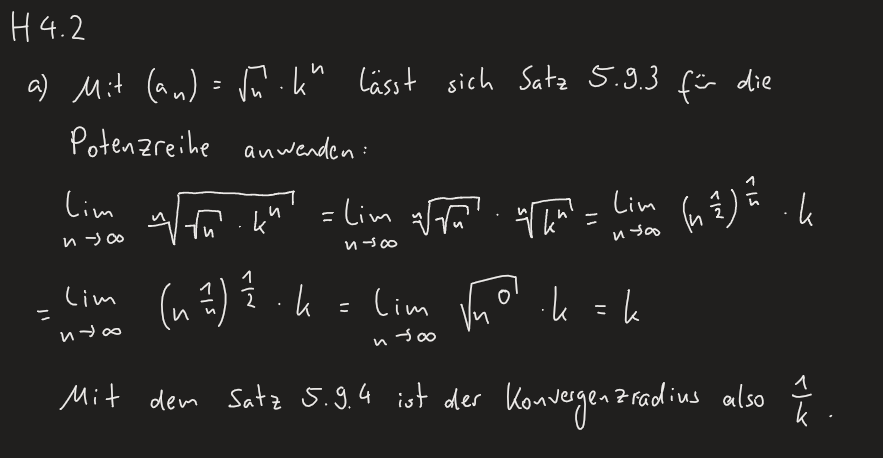 H 4.2
a) Mit (aₙ) = √n · kⁿ lässt sich Satz 5.9.3 für die
Potenzreihe anwenden:
lim n→∞ ⁿ√(√n · kⁿ) = lim n→∞ ⁿ√(√n) · ⁿ√(kⁿ) = lim n→∞ (n^(1/2))^(1/n) · k
= lim n→∞ (n^(1/n))^(1/2) · k = lim n→∞ √(n⁰) · k = k
Mit dem Satz 5.9.4 ist der Konvergenzradius also 1/k.